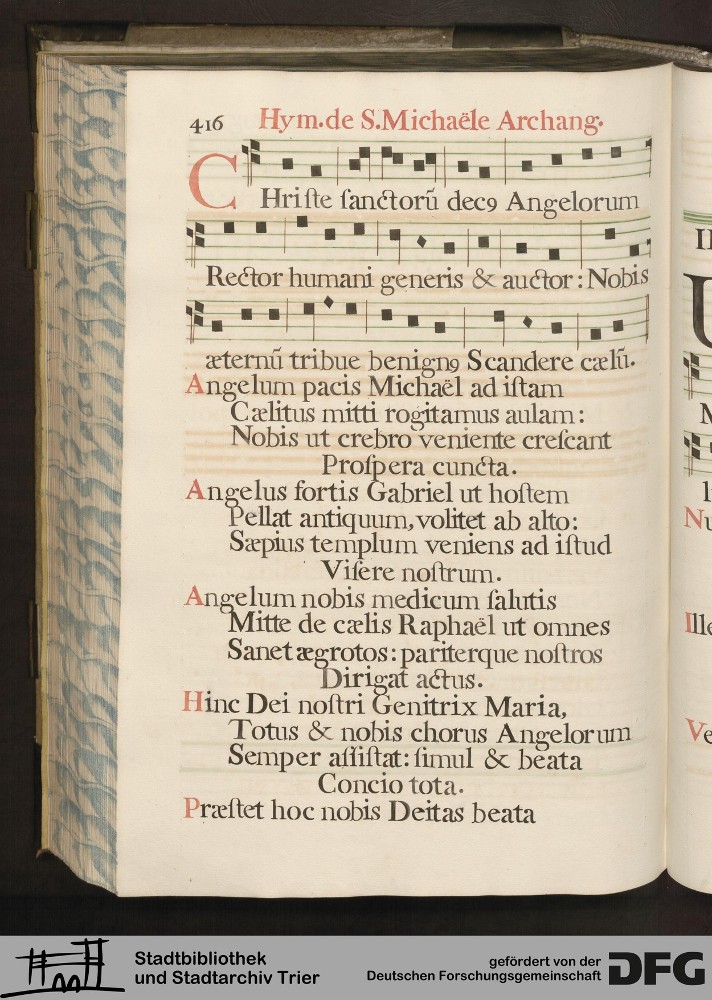 416 Hym. de S. Michaële Archang.
CHriſte ſanctorū decꝯ Angelorum
Rector humani generis & auctor: Nobis
æternū tribue benignꝯ Scandere cælū.
Angelum pacis Michaël ad iſtam
Cælitus mitti rogitamus aulam:
Nobis ut crebro veniente creſcant
Proſpera cuncta.
Angelus fortis Gabriel ut hoſtem
Pellat antiquum, volitet ab alto:
Sæpius templum veniens ad iſtud
Viſere noſtrum.
Angelum nobis medicum ſalutis
Mitte de cælis Raphaël ut omnes
Sanet ægrotos: pariterque noſtros
Dirigat actus.
Hinc Dei noſtri Genitrix Maria,
Totus & nobis chorus Angelorum
Semper aſſiſtat: ſimul & beata
Concio tota.
Præſtet hoc nobis Deitas beata
Nu
Ille
Ve
Stadtbibliothek
und Stadtarchiv Trier
gefördert von der
Deutschen Forschungsgemeinschaft
DFG